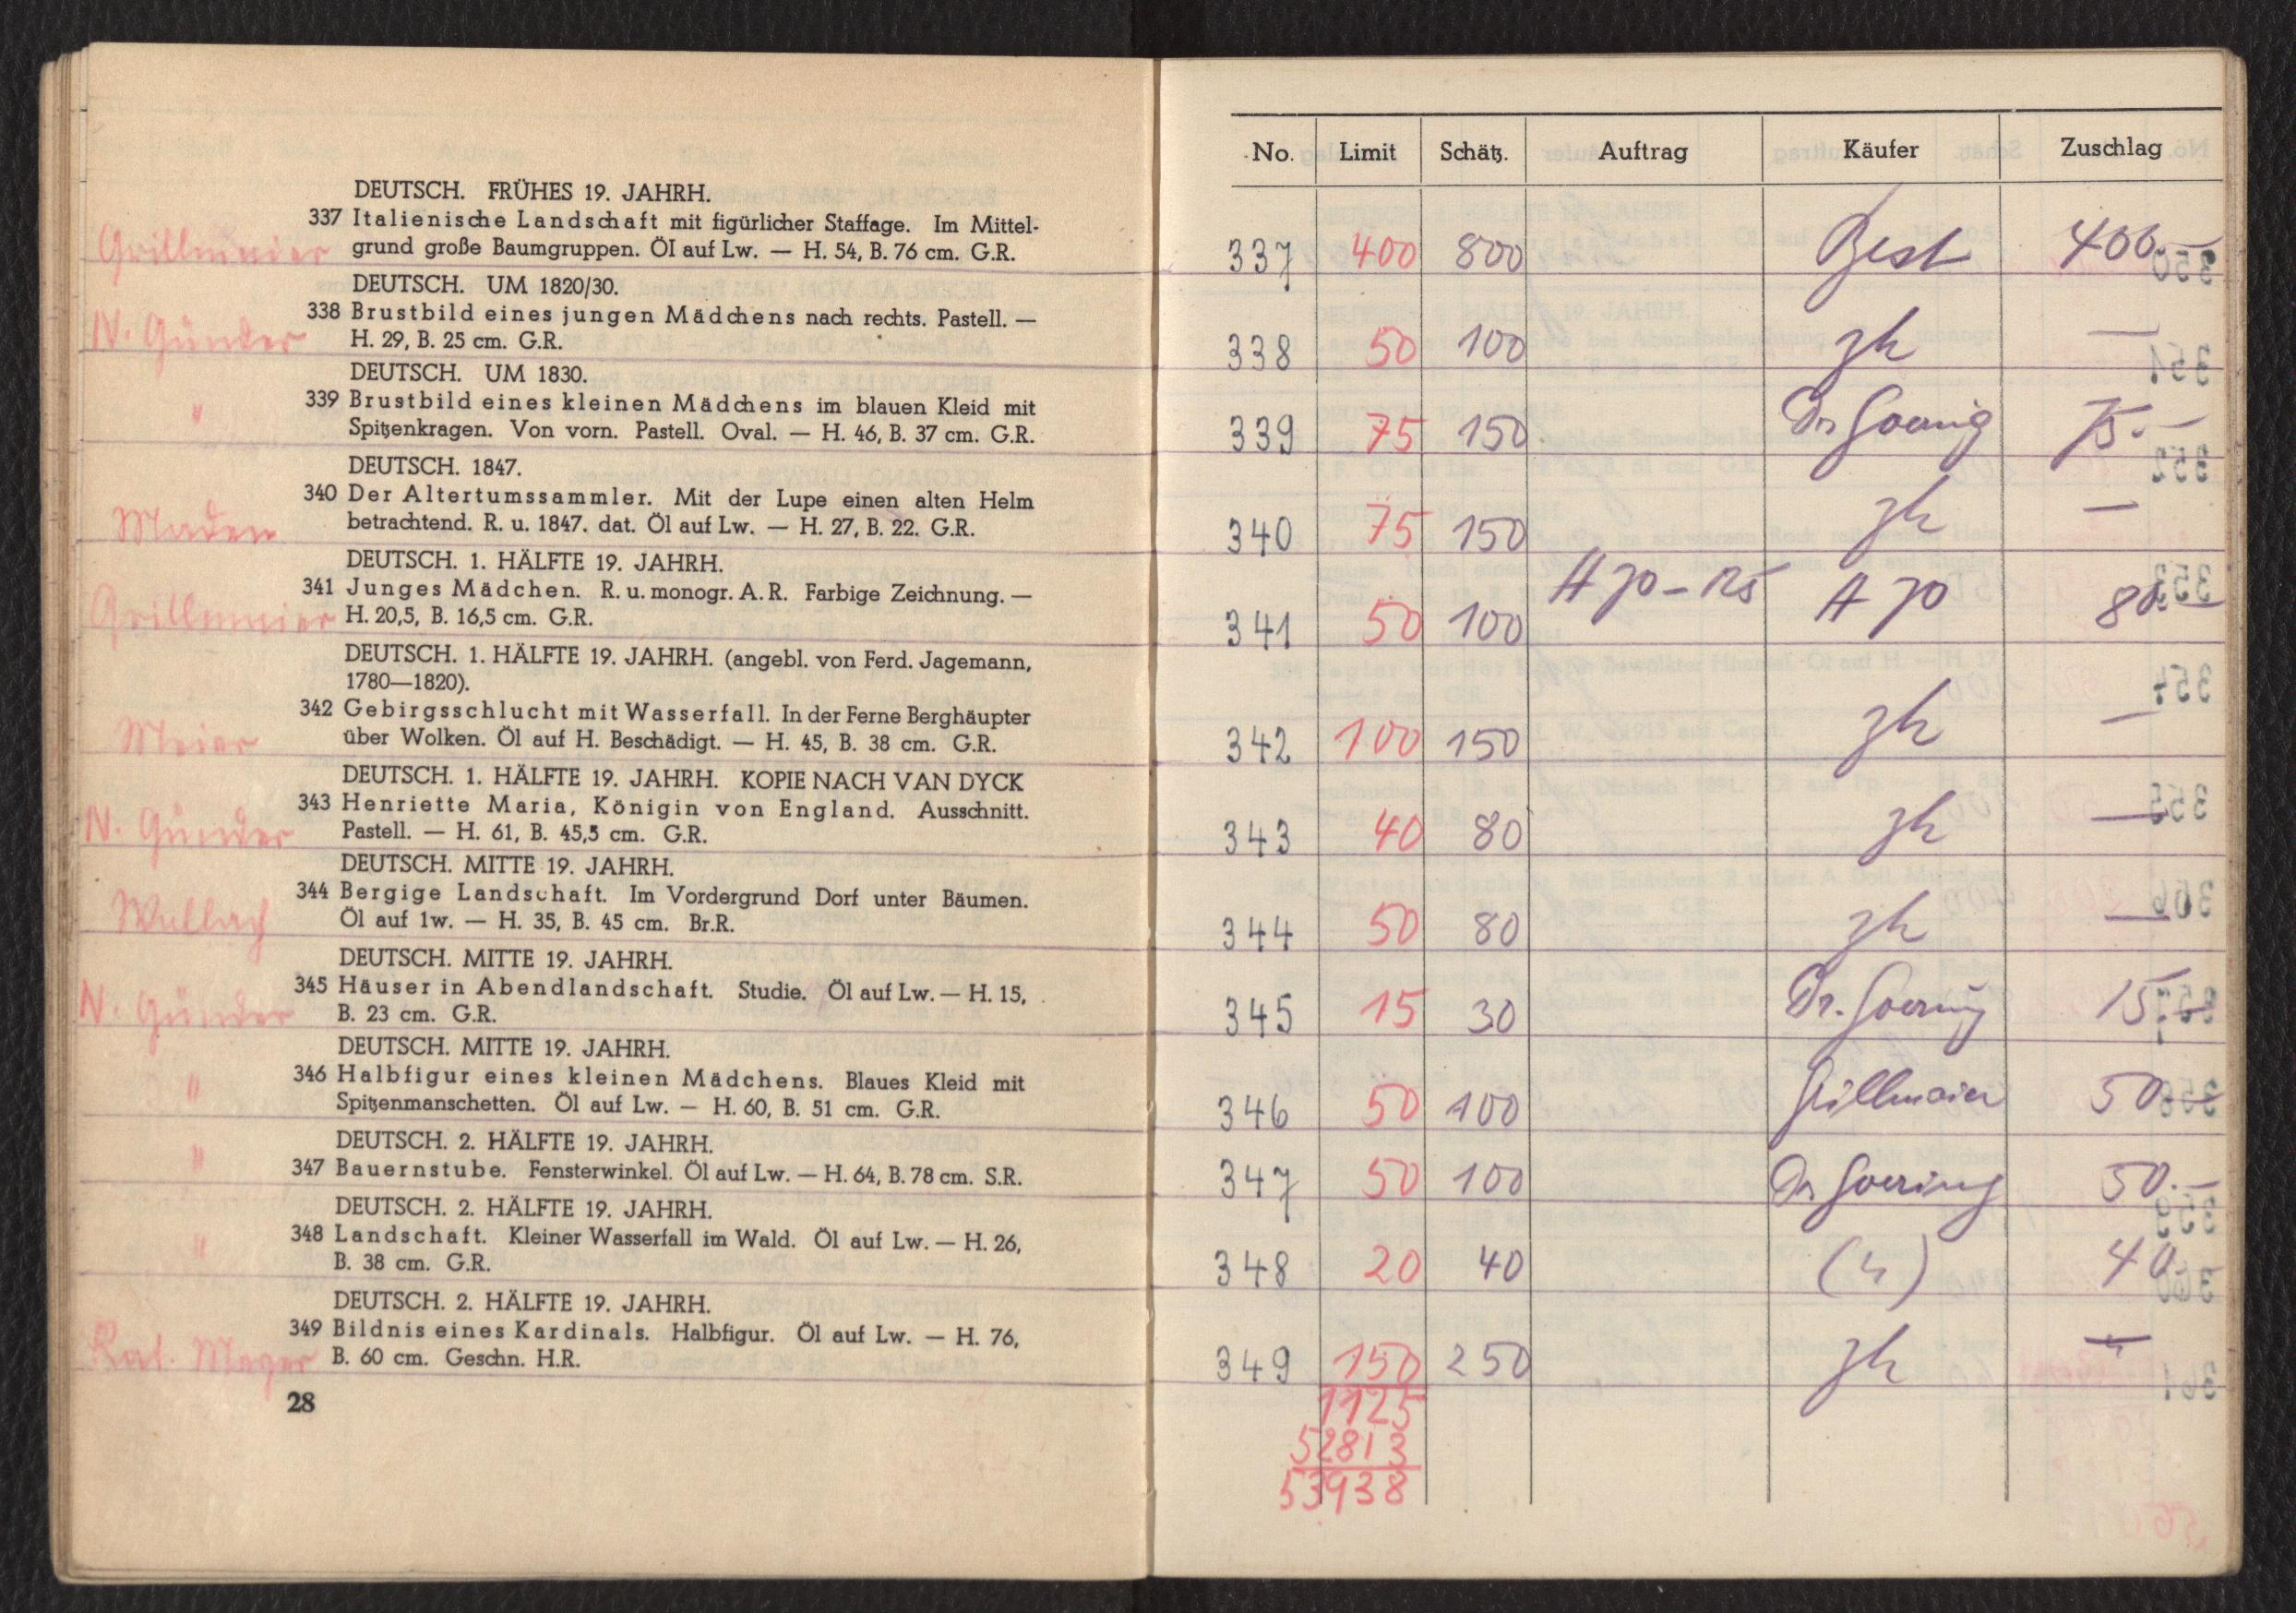 DEUTSCH. FRÜHES 19. JAHRH.
337 Italienische Landschaft mit figürlicher Staffage. Im Mittel-
Grillmaier grund große Baumgruppen. Öl auf Lw. — H. 54, B. 76 cm. G.R.
DEUTSCH. UM 1820/30.
338 Brustbild eines jungen Mädchens nach rechts. Pastell. —
N. Günder H. 29, B. 25 cm. G.R.
DEUTSCH. UM 1830.
" 339 Brustbild eines kleinen Mädchens im blauen Kleid mit
Spitzenkragen. Von vorn. Pastell. Oval. — H. 46, B. 37 cm. G.R.
DEUTSCH. 1847.
340 Der Altertumssammler. Mit der Lupe einen alten Helm
betrachtend. R. u. 1847. dat. Öl auf Lw. — H. 27, B. 22. G.R.
DEUTSCH. 1. HÄLFTE 19. JAHRH.
341 Junges Mädchen. R. u. monogr. A. R. Farbige Zeichnung. —
Grillmaier H. 20,5, B. 16,5 cm. G.R.
DEUTSCH. 1. HÄLFTE 19. JAHRH. (angebl. von Ferd. Jagemann,
1780—1820).
342 Gebirgsschlucht mit Wasserfall. In der Ferne Berghäupter
Meier über Wolken. Öl auf H. Beschädigt. — H. 45, B. 38 cm. G.R.
DEUTSCH. 1. HÄLFTE 19. JAHRH. KOPIE NACH VAN DYCK
343 Henriette Maria, Königin von England. Ausschnitt.
N. Günder Pastell. — H. 61, B. 45,5 cm. G.R.
DEUTSCH. MITTE 19. JAHRH.
344 Bergige Landschaft. Im Vordergrund Dorf unter Bäumen.
Wallach Öl auf 1w. — H. 35, B. 45 cm. Br.R.
DEUTSCH. MITTE 19. JAHRH.
345 Häuser in Abendlandschaft. Studie. Öl auf Lw. — H. 15,
N. Günder B. 23 cm. G.R.
DEUTSCH. MITTE 19. JAHRH.
" 346 Halbfigur eines kleinen Mädchens. Blaues Kleid mit
Spitzenmanschetten. Öl auf Lw. — H. 60, B. 51 cm. G.R.
DEUTSCH. 2. HÄLFTE 19. JAHRH.
" 347 Bauernstube. Fensterwinkel. Öl auf Lw. — H. 64, B. 78 cm. S.R.
DEUTSCH. 2. HÄLFTE 19. JAHRH.
" 348 Landschaft. Kleiner Wasserfall im Wald. Öl auf Lw. — H. 26,
B. 38 cm. G.R.
DEUTSCH. 2. HÄLFTE 19. JAHRH.
349 Bildnis eines Kardinals. Halbfigur. Öl auf Lw. — H. 76,
B. 60 cm. Geschn. H.R.
28
No. Limit Schätz. Auftrag Käufer Zuschlag
337 400 800 Best 400.—
338 50 100 zk —
339 75 150 Dr Goering 75.—
340 75 150 zk —
341 50 100 H 70 - 125 H 70 80.—
342 100 150 zk —
343 40 80 zk —
344 50 80 zk —
345 15 30 Dr. Goering 15.—
346 50 100 Grillmaier 50.—
347 50 100 Dr Goering 50.—
348 20 40 (h) 40.—
349 150 250 zk —
1125
52813
53938